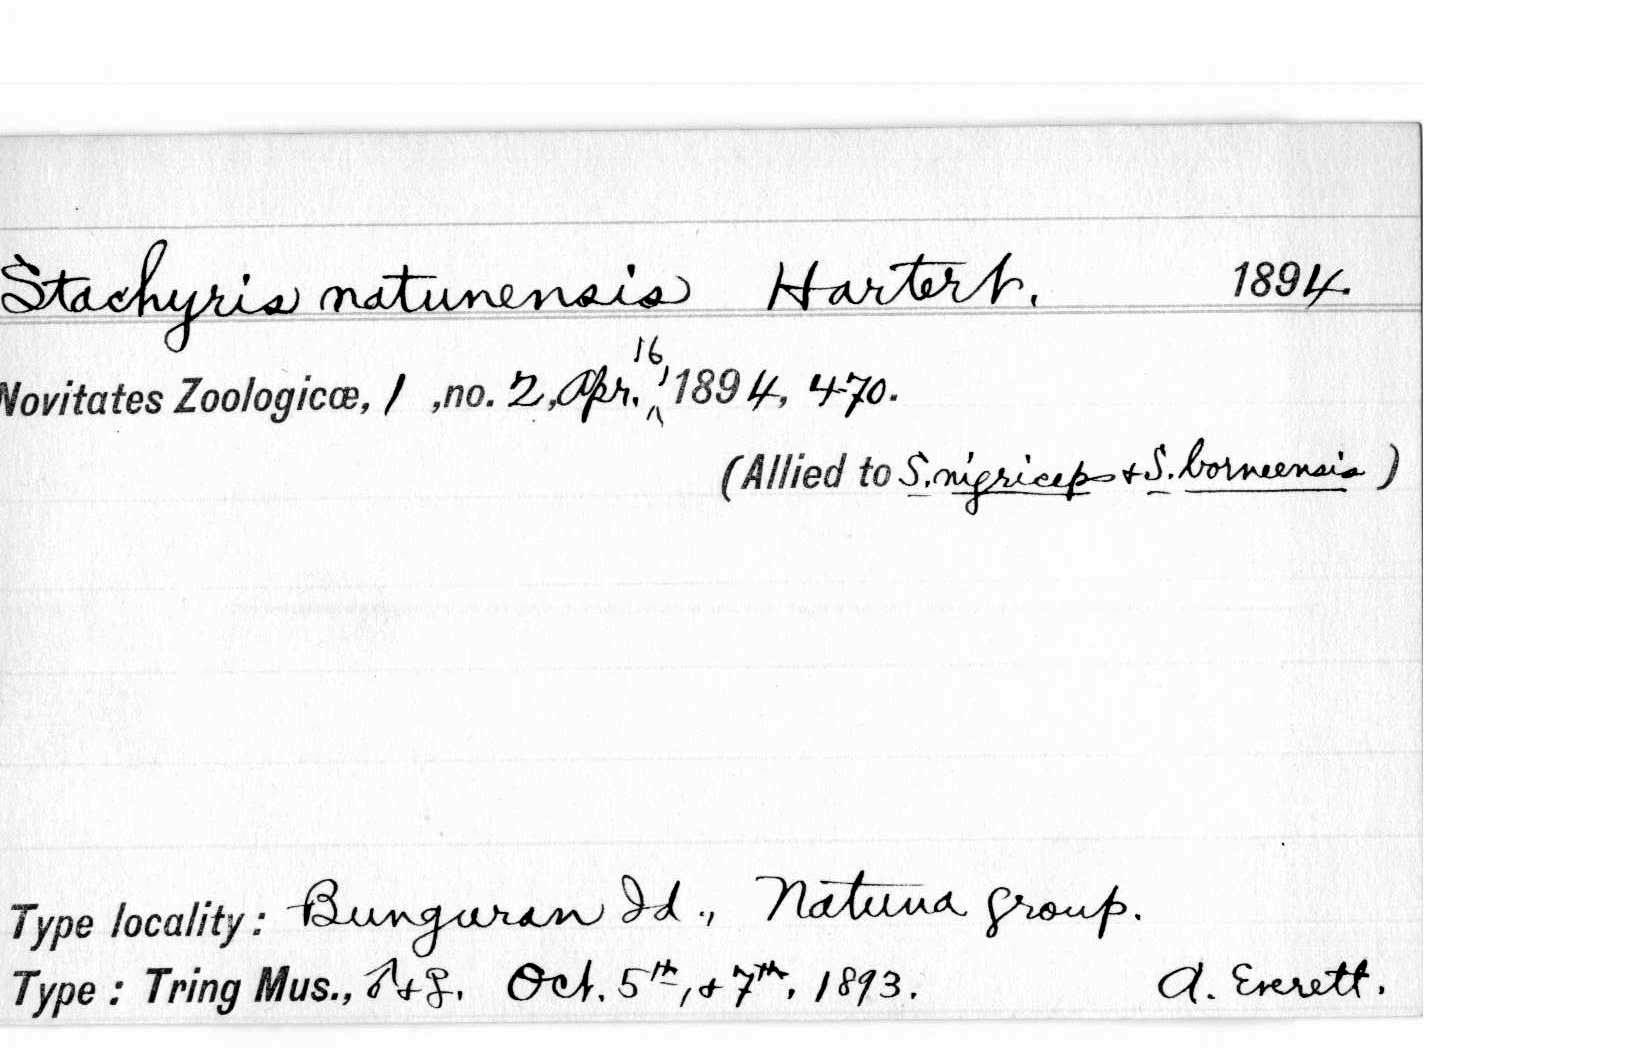 Stachyris natunensis Hartert. 1894.
Novitates Zoologicæ, 1 ,no. 2, Apr. 16, 1894, 470.
(Allied to S. nigriceps + S. borneensis )
Type locality: Bunguran Id., Natuna group.
Type : Tring Mus., ♂ + ♀. Oct. 5th, + 7th, 1893. A. Everett.